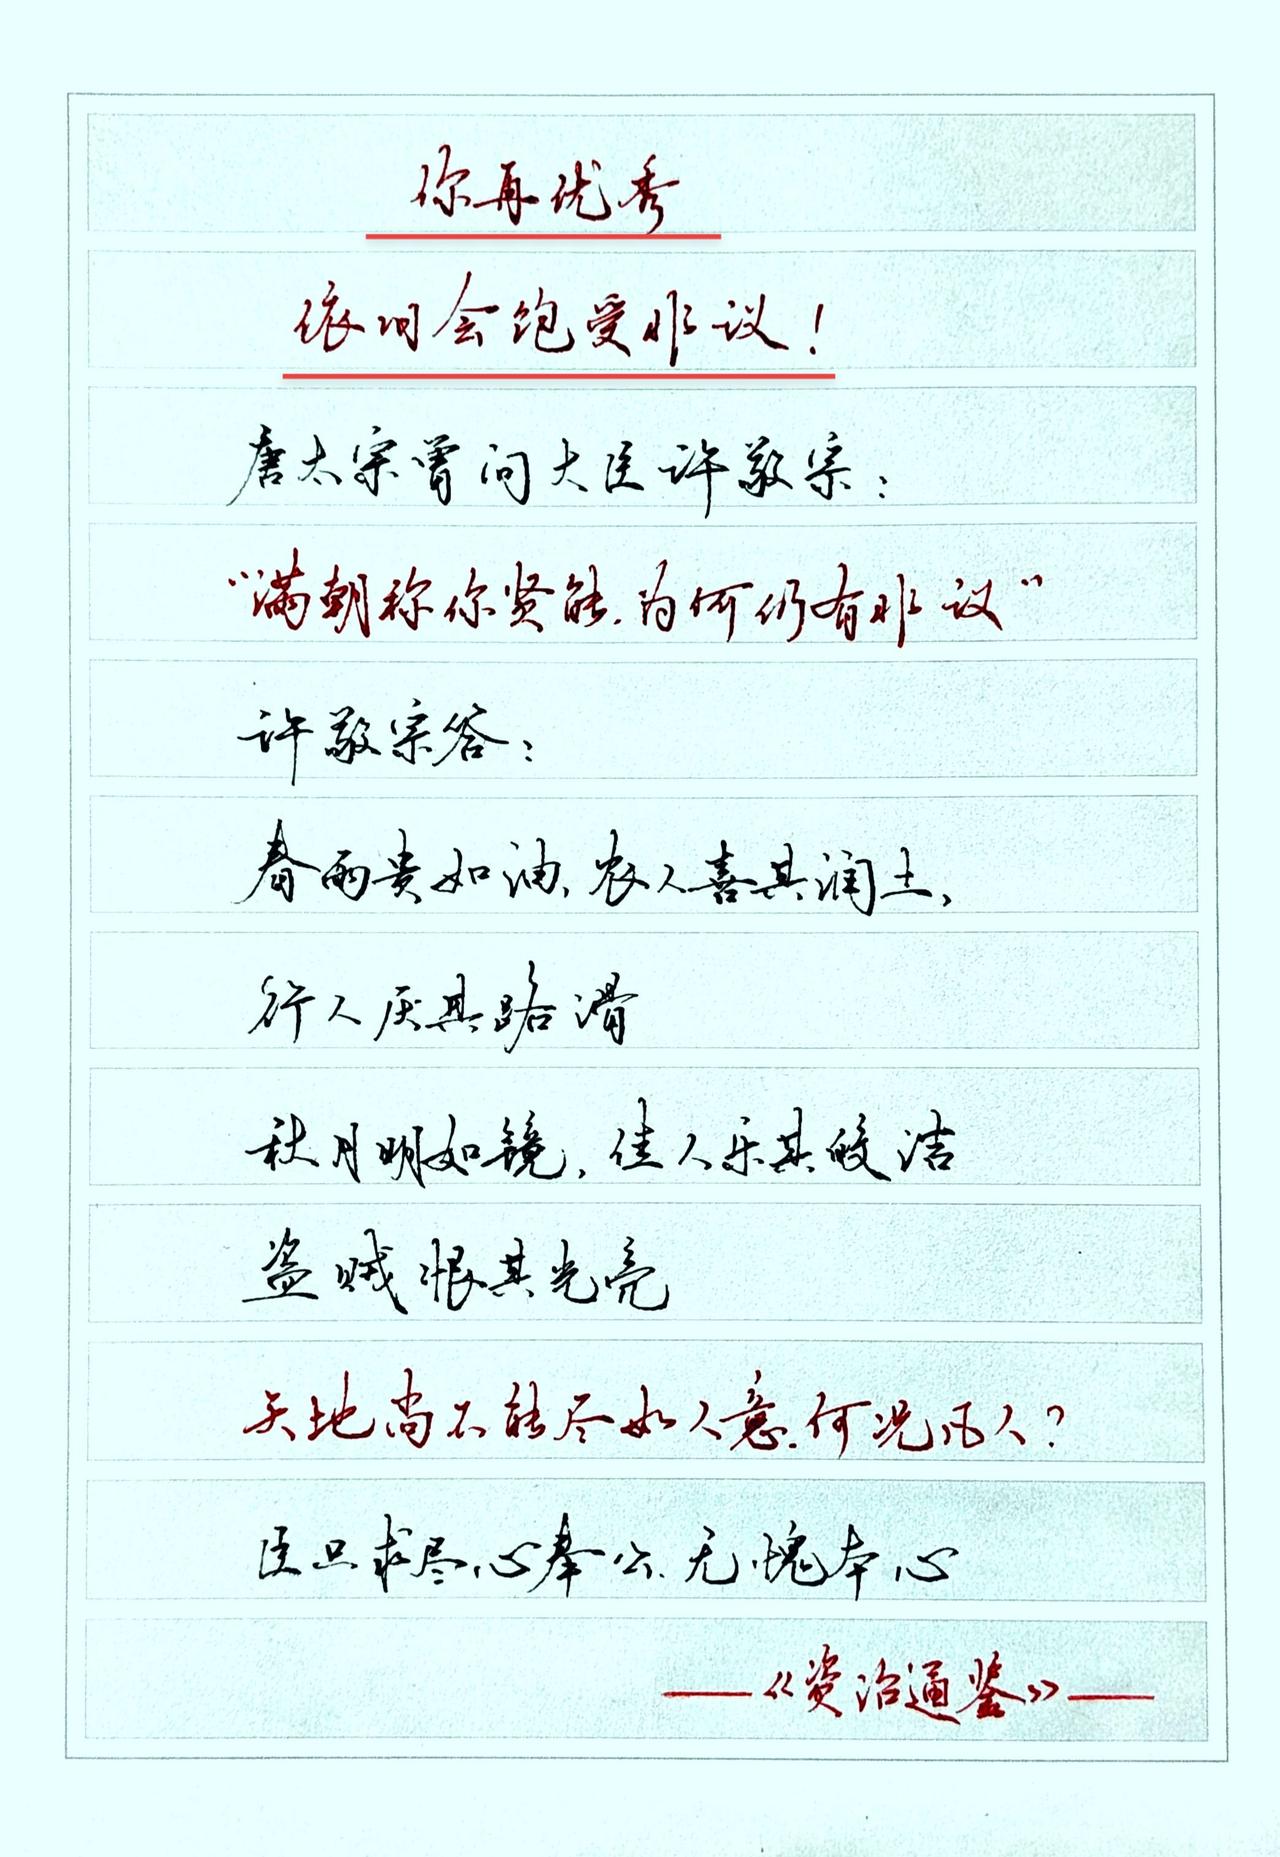 你再优秀
依旧会饱受非议！
唐太宗曾问大臣许敬宗：
“满朝称你贤能，为何仍有非议”
许敬宗答：
春雨贵如油，农人喜其润土，
行人厌其路滑
秋月明如镜，佳人乐其皎洁
盗贼恨其光亮
天地尚不能尽如人意，何况凡人？
臣只求尽心奉公，无愧本心
——《资治通鉴》——